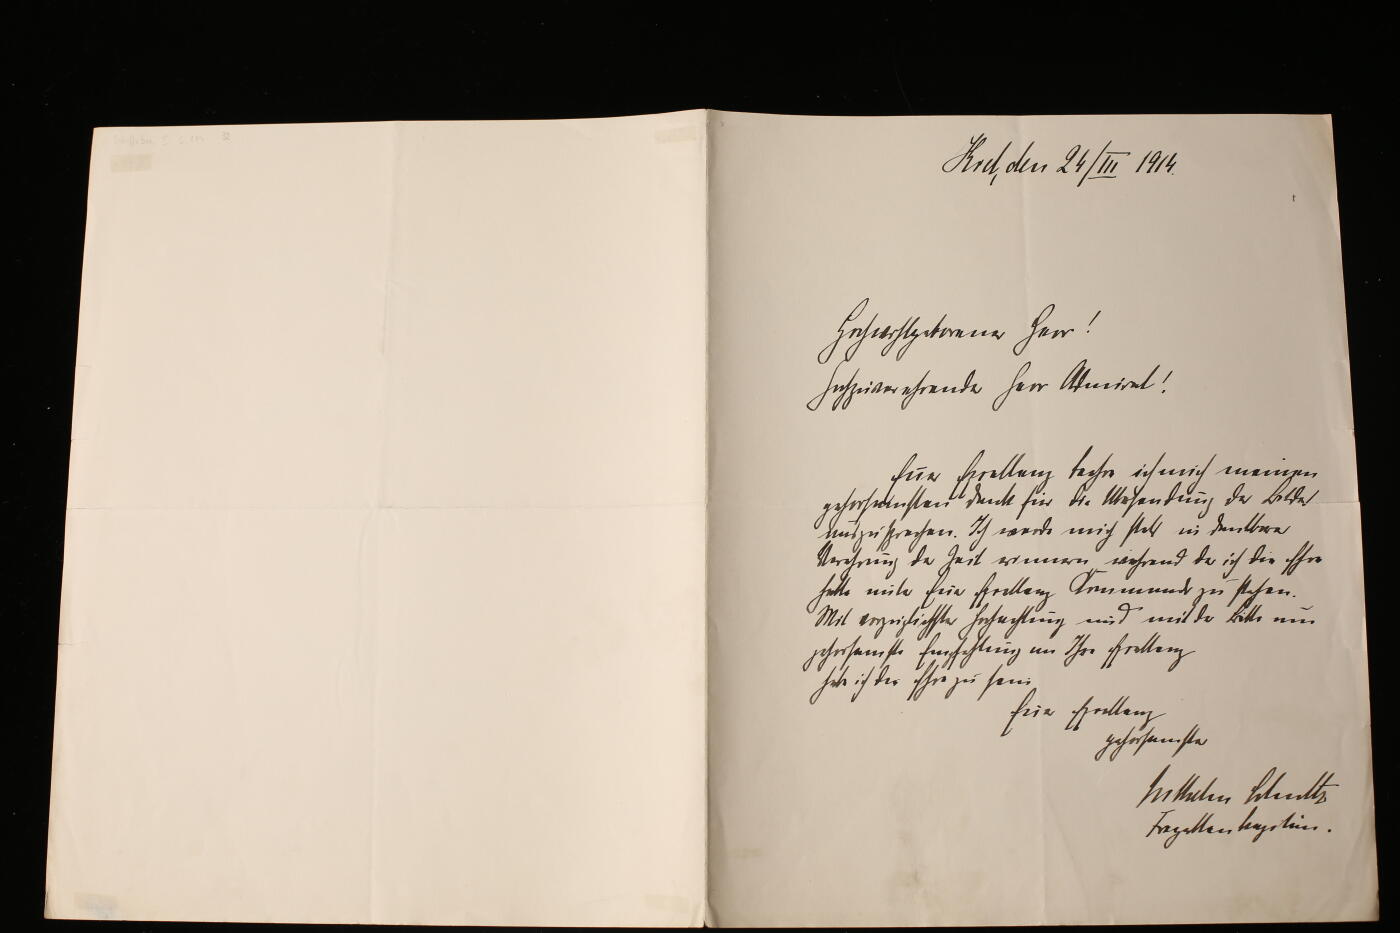 Kiel, den 24/III 1914.
Hochwohlgeborener Herr!
Hochzuverehrender Herr Admiral!
Euer Exzellenz beehre ich mich meinen
gehorsamsten Dank für die Übersendung der Bilder
auszusprechen. Ich werde mich stets in dankbarer
Verehrung der Zeit erinnern während der ich die Ehre
hatte unter Euer Exzellenz Kommando zu stehen.
Mit vorzüglichster Hochachtung und mit der Bitte um
gehorsamste Empfehlung an Ihre Exzellenz
habe ich die Ehre zu sein
Euer Exzellenz
gehorsamster
Wilhelm
Fregattenkapitän.